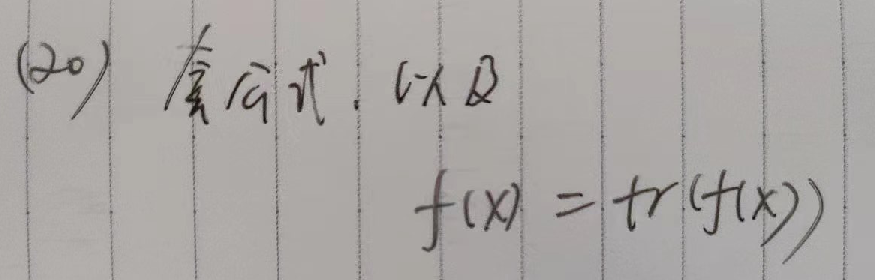 (20) 套公式. 以及
f(x) = tr(f(x))